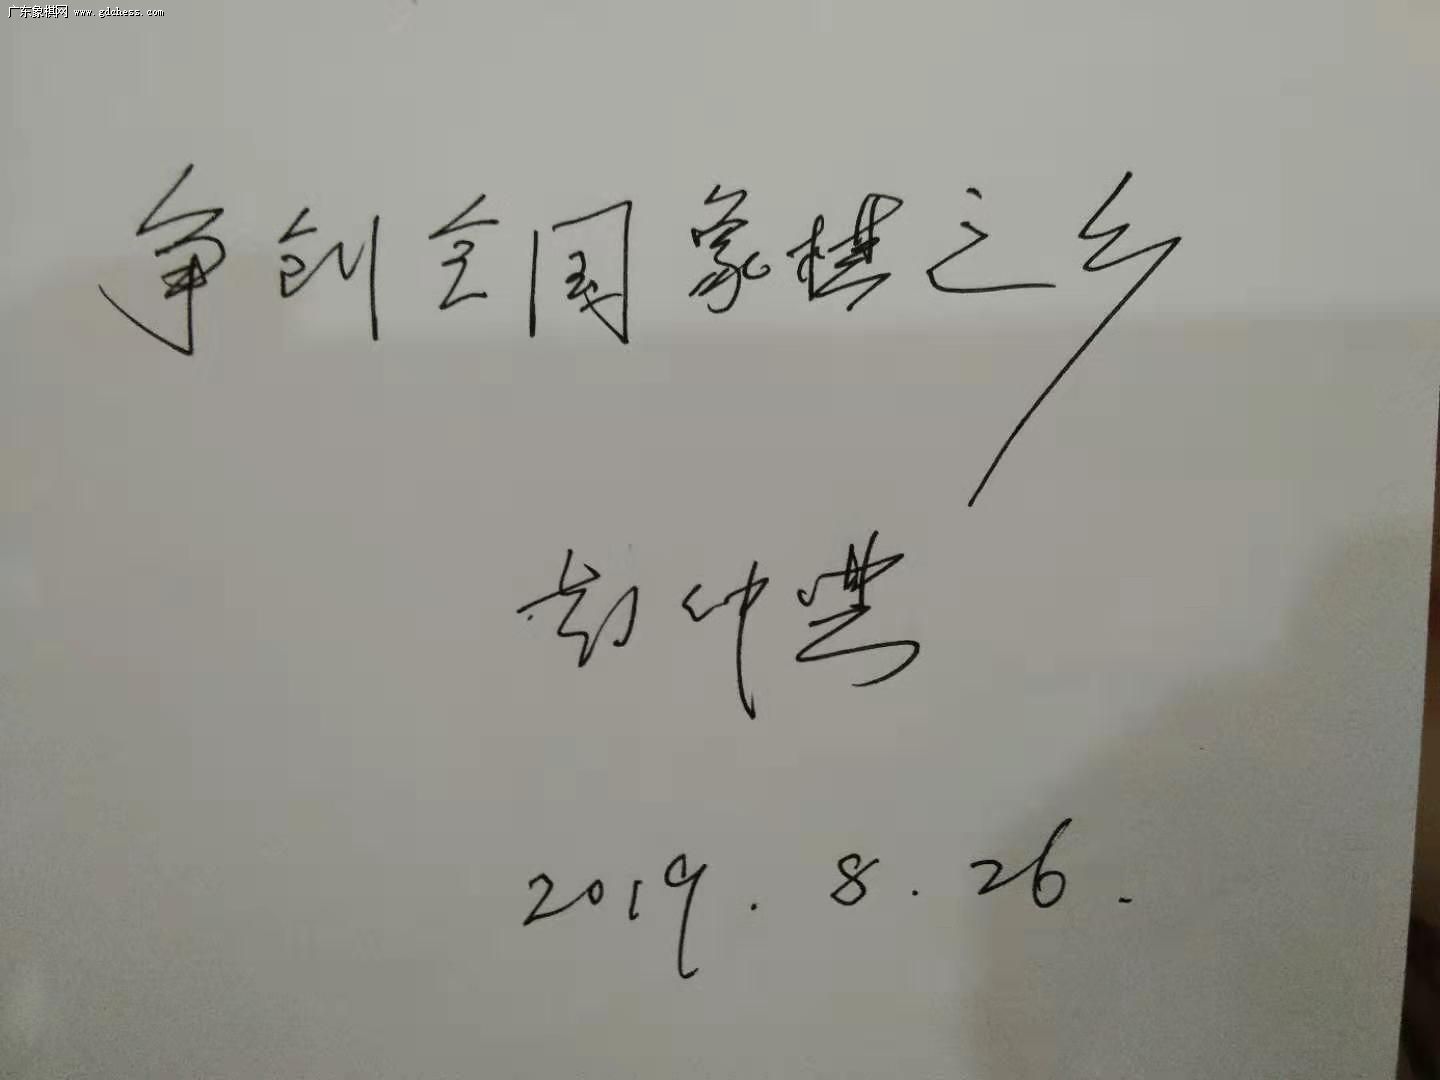 广东象棋网 www.gdchess.com
争创全国象棋之乡
仲
2019.8.26.